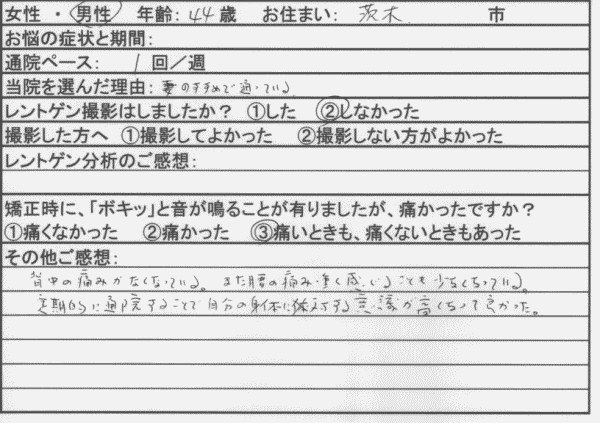 女性 ・ 男性 年齢: 44 歳 お住まい: 茨木 市
お悩の症状と期間:
通院ペース: 1 回／週
当院を選んだ理由: 妻のすすめで通っている
レントゲン撮影はしましたか？ ①した ②しなかった
撮影した方へ ①撮影してよかった ②撮影しない方がよかった
レントゲン分析のご感想:
矯正時に、「ボキッ」と音が鳴ることが有りましたが、痛かったですか？
①痛くなかった ②痛かった ③痛いときも、痛くないときもあった
その他ご感想:
背中の痛みがなくなっている。また腰の痛み・重く感じることも少なくなっている。
定期的に通院することで自分の身体に対する意識が高くなって良かった。